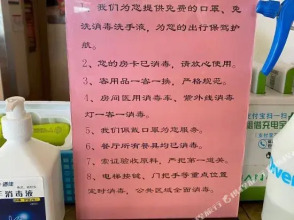 1、我们为您提供免费的口罩，免
洗消毒洗手液，为您的出行保驾护
航。
2、您的房卡已消毒，请放心使用。
3、客用品一客一换，严格规范。
4、房间医用消毒车，紫外线消毒
灯一客一消毒。
5、我们佩戴口罩为您服务。
6、餐厅所有餐具均已消毒。
7、索证验收原料，严把第一道关。
8、电梯按键，门把手等重点位置
定时消毒，公共区域全面消毒。
手消毒液
支付宝扫一扫